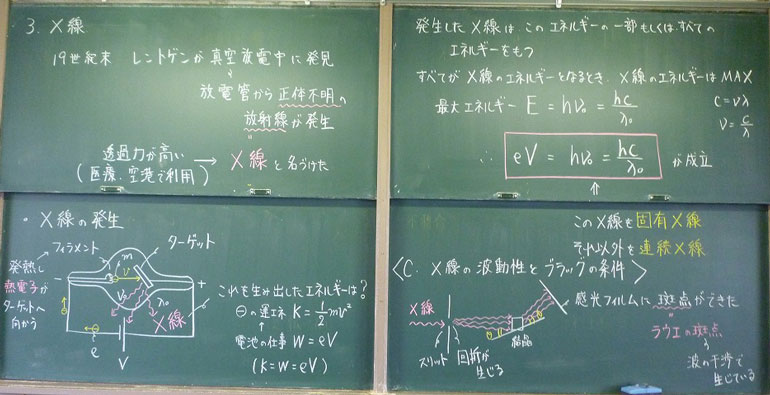 3. X線
19世紀末 レントゲンが真空放電中に発見
放電管から正体不明の
放射線が発生
透過力が高い
(医療、空港で利用)
→ X線と名づけた
・X線の発生
フィラメント
ターゲット
発熱し
熱電子が
ターゲットへ
向かう
m
V
+
λ₀
X線
e
V
これを生み出したエネルギーは?
⊖の運エネ K = 1/2 mv²
↑
電池の仕事 W = eV
(K=W=eV)
発生したX線は、このエネルギーの一部もしくはすべての
エネルギーをもつ
すべてがX線のエネルギーとなるとき、X線のエネルギーはMAX
最大エネルギー E = hν₀ = hc/λ₀
c=νλ
ν=c/λ
∴ eV = hν₀ = hc/λ₀ が成立
↑
このX線を固有X線
それ以外を連続X線
〈C. X線の波動性とブラッグの条件〉
X線
スリット
回折が
生じる
結晶
感光フィルムに斑点ができた
ラウエの斑点
波の干渉で
生じている